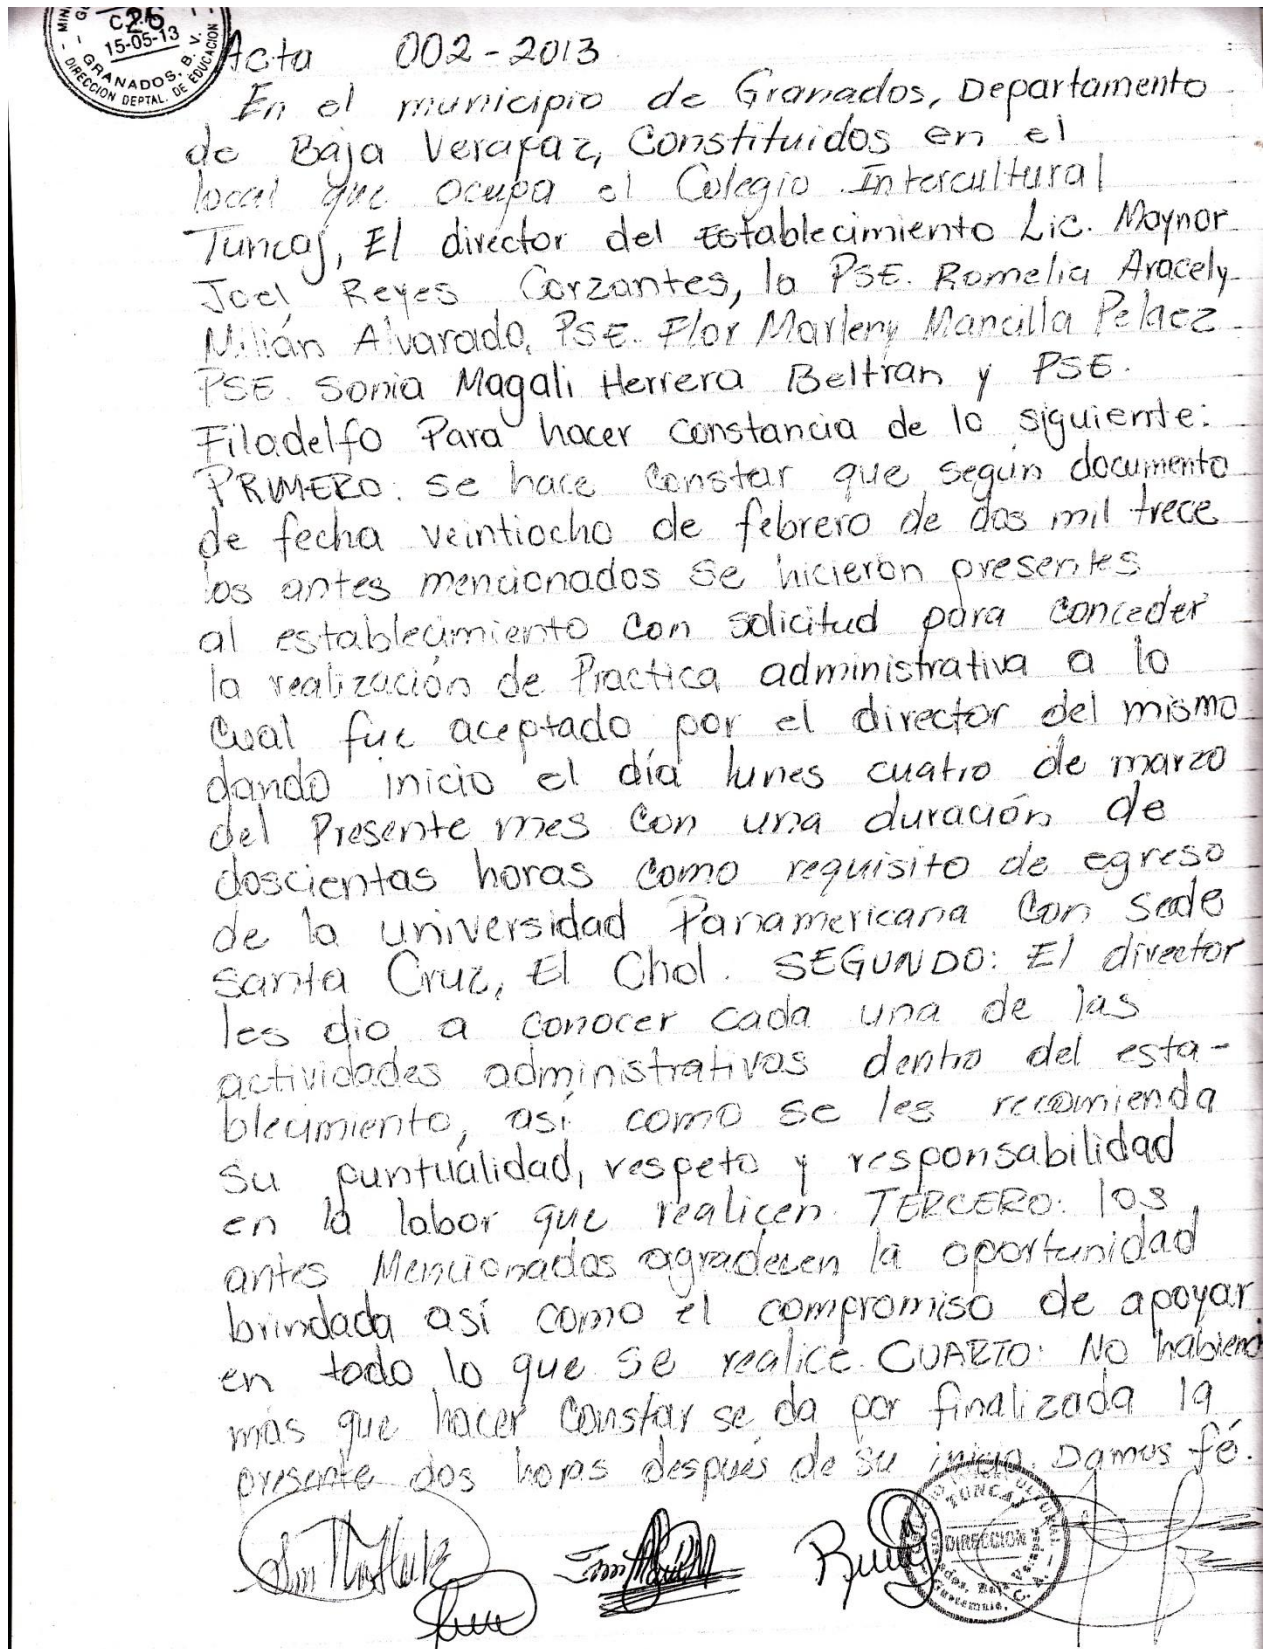 26
15-05-13
GRANADOS, B. V.
DIRECCION DEPTAL. DE EDUCACION
Acta 002-2013
En el municipio de Granados, Departamento
de Baja Verapaz, Constituidos en el
local que ocupa el Colegio Intercultural
Tuncaj, El director del Establecimiento Lic. Maynor
Joel Reyes Corzantes, la PSE. Romelia Aracely
Milián Alvarado, PSE. Flor Marleny Mancilla Pelaez
PSE. Sonia Magali Herrera Beltran y PSE.
Filadelfo Para hacer constancia de lo siguiente:
PRIMERO: se hace constar que según documento
de fecha veintiocho de febrero de dos mil trece
los antes mencionados se hicieron presentes
al establecimiento con solicitud para conceder
la realización de Practica administrativa a lo
cual fue aceptado por el director del mismo
dando inicio el día lunes cuatro de marzo
del Presente mes con una duración de
doscientas horas como requisito de egreso
de la universidad Panamericana con sede
santa Cruz, El Chol. SEGUNDO: El director
les dio a conocer cada una de las
actividades administrativas dentro del esta-
blecimiento, así como se les recomienda
su puntualidad, respeto y responsabilidad
en la labor que realicen. TERCERO: los
antes Mencionados agradecen la oportunidad
brindada así como el compromiso de apoyar
en todo lo que se realice. CUARTO: No habiend
más que hacer constar se da por finalizada la
presente dos horas después de su inicio. Damos fé.
TUNCAJ
DIRECCION
Granados, Baja Verapaz
Guatemala, C. A.